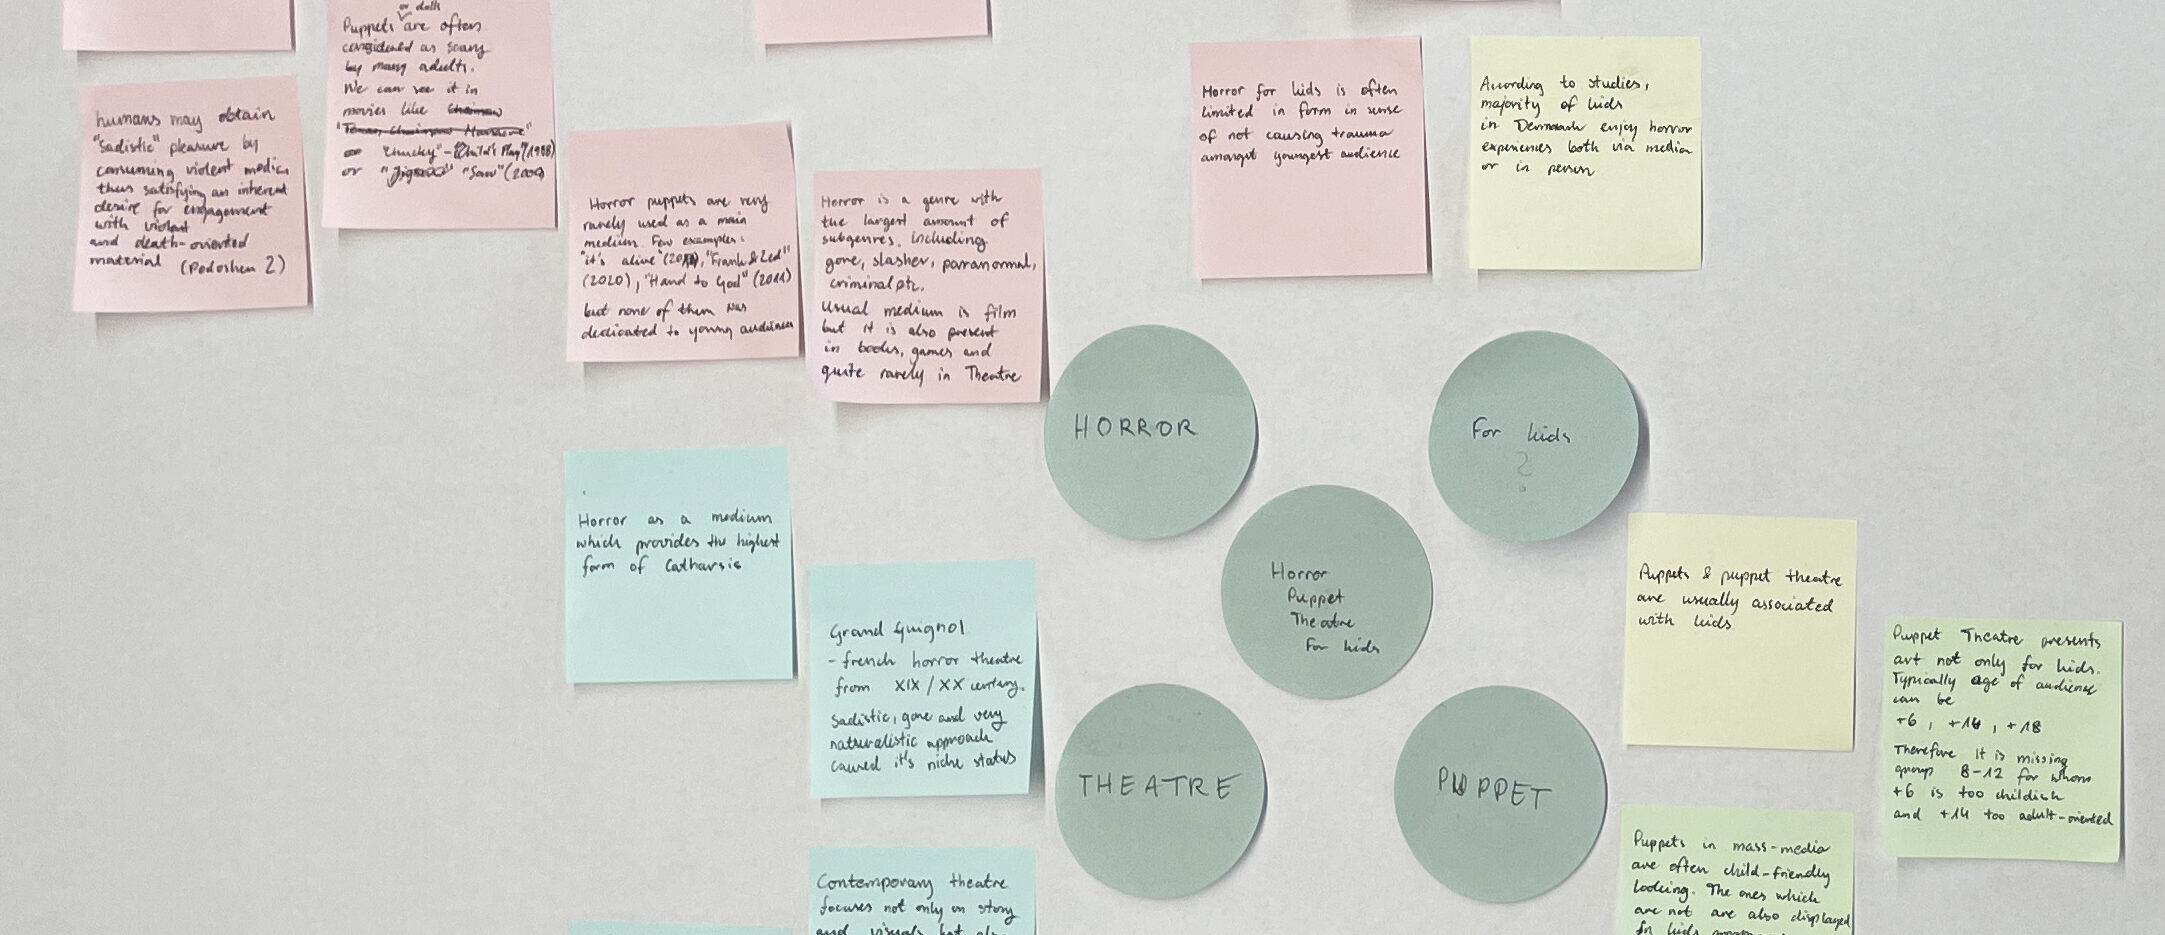 or dolls
Puppets are often
considered as scary
by many adults.
We can see it in
movies like Chainsaw
"Texas Chainsaw Massacre"
or "Chucky" - "Child's Play" (1988)
or "Jigsaw" "Saw" (2004)
humans may obtain
"sadistic" pleasure by
consuming violent media
thus satisfying an inherent
desire for engagement
with violent
and death-oriented
material (Podoshen 2)
Horror puppets are very
rarely used as a main
medium. Few examples:
"it's alive" "Frank & Zed"
(2020), "Hand to God" (2011)
but none of them was
dedicated to young audiences
Horror is a genre with
the largest amount of
subgenres. Including
gore, slasher, paranormal,
criminal etc.
Usual medium is film
but it is also present
in books, games and
quite rarely in Theatre
Horror for kids is often
limited in form in sense
of not causing trauma
amongst youngest audience
According to studies,
majority of kids
in Denmark enjoy horror
experiences both via media
or in person
HORROR
For kids
?
Horror
Puppet
Theatre
For kids
THEATRE
PUPPET
Horror as a medium
which provides the highest
form of Catharsis
Grand Guignol
- french horror theatre
from XIX / XX century.
Sadistic, gore and very
naturalistic approach
caused it's niche status
Contemporary theatre
focuses not only on story
and visuals but also
Puppets & puppet theatre
are usually associated
with kids
Puppet Theatre presents
art not only for kids.
Typically age of audience
can be
+6, +14, +18
Therefore it is missing
group 8-12 for whom
+6 is too childish
and +14 too adult-oriented
Puppets in mass-media
are often child-friendly
looking. The ones which
are not are also displayed
for kids